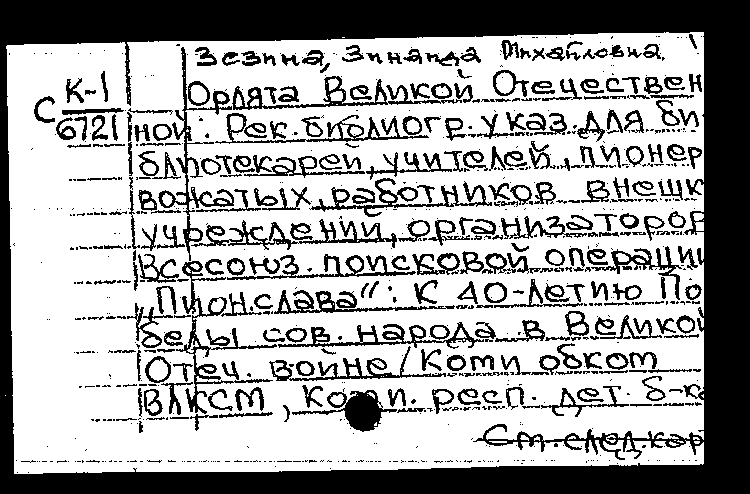 Зезина, Зинаида Михайловна.
С К-1
6721
Орлята Великой Отечествен
ной: Рек. библиогр. указ. для би
блиотекарей, учителей, пионер
вожатых, работников внешк
учреждений, организаторов
Всесоюз. поисковой операции
„Пион. слава“: К 40-летию По
беды сов. народа в Великой
Отеч. войне / Коми обком
ВЛКСМ, Коми. респ. дет. б-ка
См. след. кар